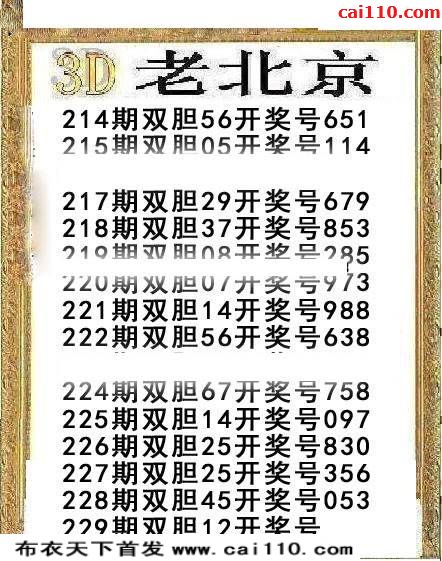 cai110.com
3D 老北京
214期双胆56开奖号651
215期双胆05开奖号114
217期双胆29开奖号679
218期双胆37开奖号853
219期双胆08开奖号285
220期双胆07开奖号973
221期双胆14开奖号988
222期双胆56开奖号638
224期双胆67开奖号758
225期双胆14开奖号097
226期双胆25开奖号830
227期双胆25开奖号356
228期双胆45开奖号053
229期双胆12开奖号
布衣天下首发 www.cai110.com